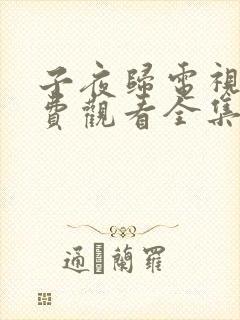 子夜歸電視
費觀看全集
通蘭羅